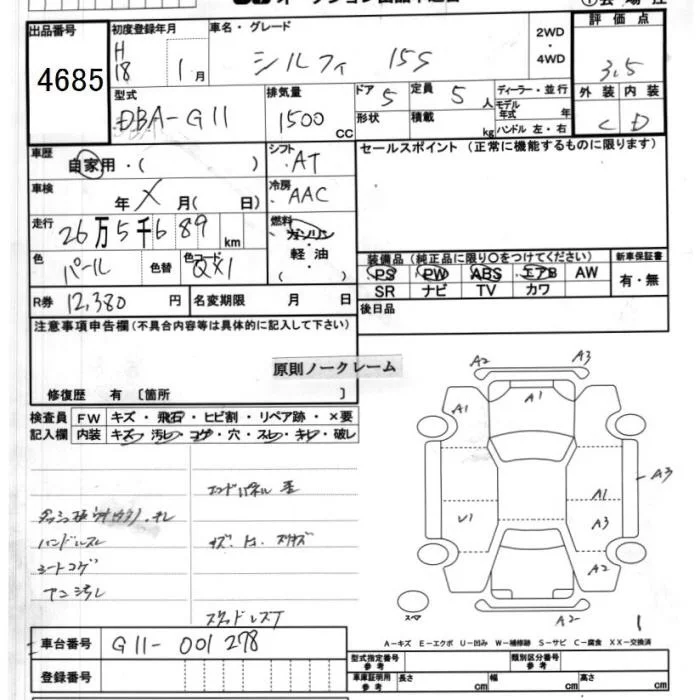 出品番号
4685
初度登録年月
H
18 1月
車名・グレード
シルフィ 15S
2WD
・
4WD
評価点
3.5
外装 内装
C D
型式
DBA-G11
排気量
1500 CC
ドア 5
定員 5 人
形状
積載 kg
ディーラー・並行
モデル年式 年
ハンドル 左・右
車歴
自家用・( )
シフト
AT
セールスポイント (正常に機能するものに限ります)
車検
年 X 月( 日)
冷房
AAC
走行
26万5千689 km
燃料
ガソリン
軽油
( )
色
パール
色替
色コード
QX1
装備品 (純正品に限り○をつけてください)
PS PW ABS エアB AW
SR ナビ TV カワ
新車保証書
有・無
R券 12,380 円
名変期限 月 日
後日品
注意事項申告欄(不具合内容等は具体的に記入して下さい)
原則ノークレーム
修復歴 有 〔箇所 〕
検査員
記入欄
FW キズ・飛石・ヒビ割・リペア跡・×要
内装 キズ・汚レ・コゲ・穴・スレ・キレ・破レ
ハンドルスレ
シートコゲ
A2 A3
A1 A1
A3
A1
U1 A3
A2
スペア
A2
1
A-キズ E-エクボ U-凹み W-補修跡 S-サビ C-腐食 XX-交換済
車台番号 G11-001278
登録番号
型式指定番号
参考
類別区分番号
参考
車庫証明用
参考
長さ cm 幅 cm 高さ cm